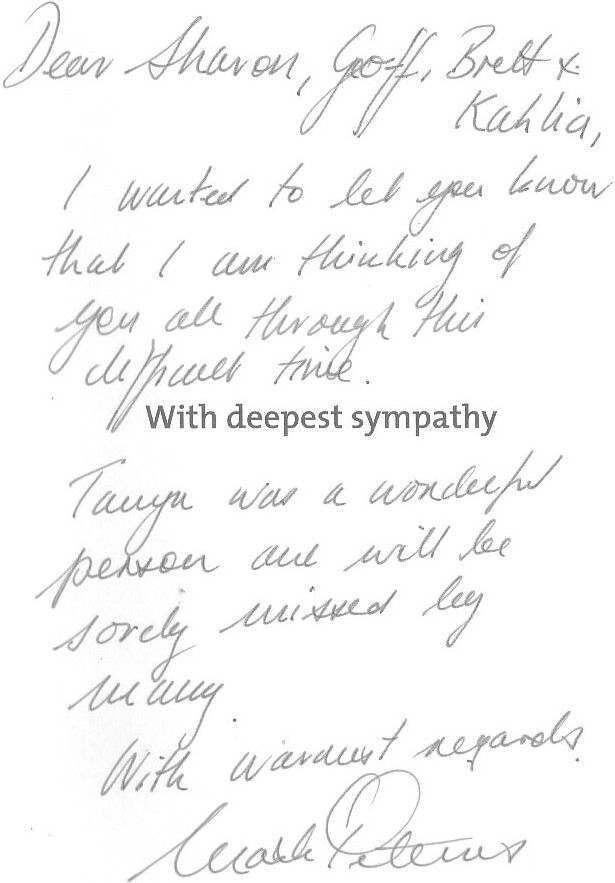 Dear Sharon, Geoff, Brett &
Kahlia,
I wanted to let you know
that I am thinking of
you all through this
difficult time.
With deepest sympathy
Tanya was a wonderful
person and will be
sorely missed by
many.
With warmest regards,
Mark Peterns